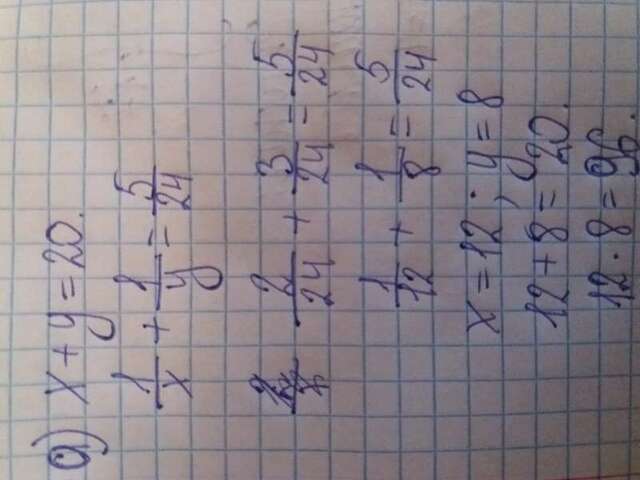 а) x + y = 20.
1/x + 1/y = 5/24
2/24 + 3/24 = 5/24
1/12 + 1/8 = 5/24
x = 12; y = 8
12 + 8 = 20.
12 · 8 = 96.